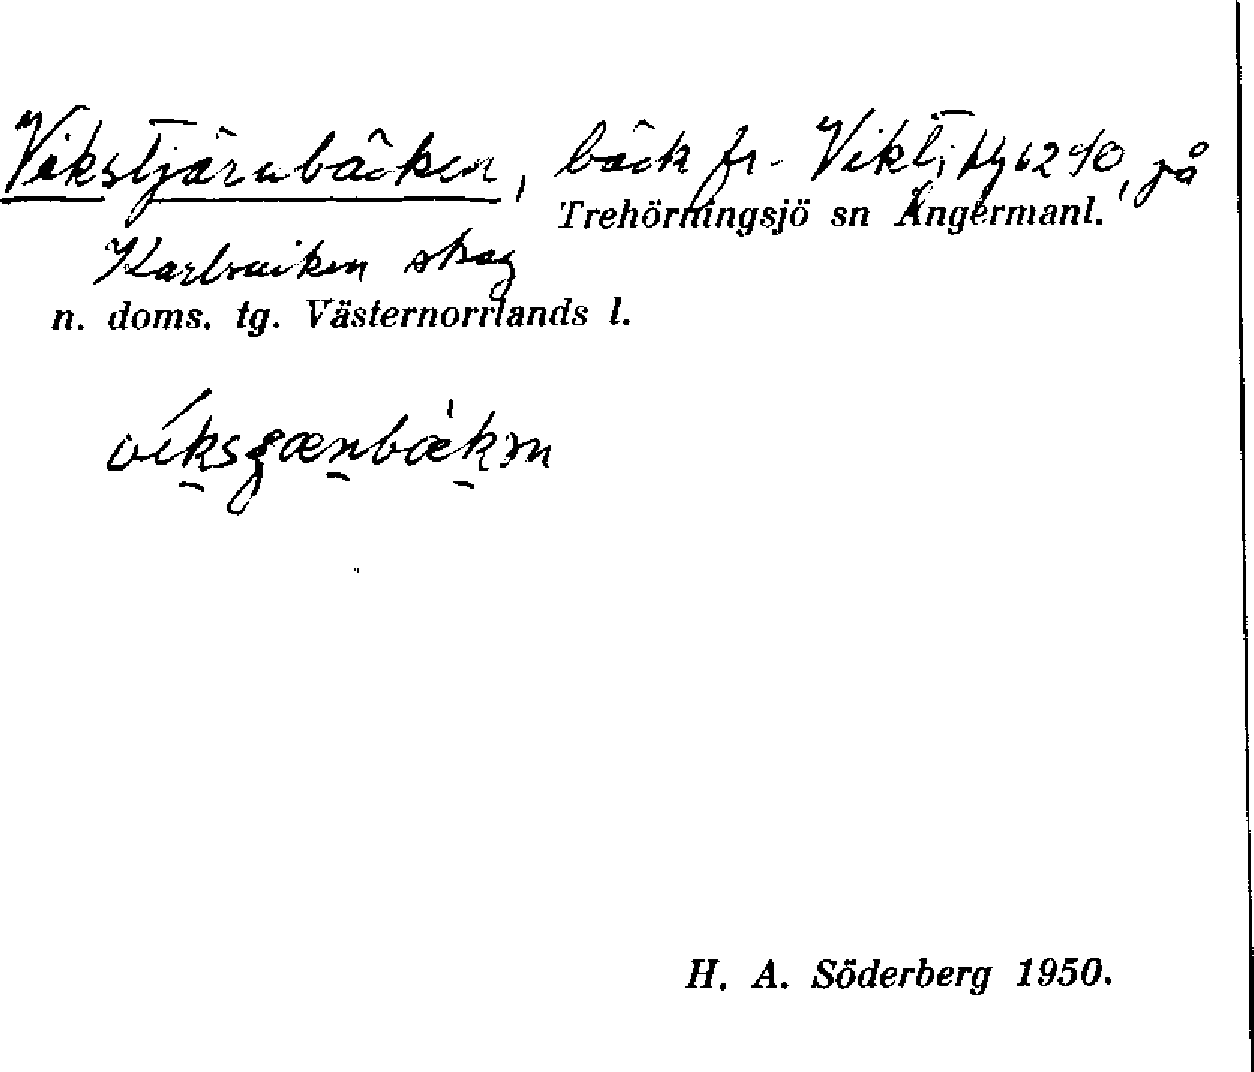 Vikstjärnbäcken, bäck fr. Viktj på
Trehörningsjö sn Ångermanl.
Karlsviken skog
n. doms. tg. Västernorrlands l.
H. A. Söderberg 1950.